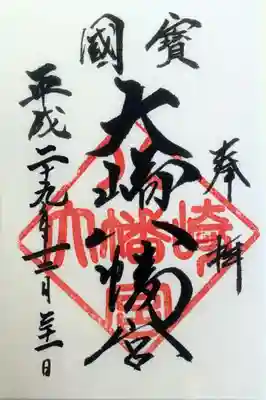 國寶
奉拝
大崎八幡宮
平成二十九年十二月三十一日
大崎八幡宮